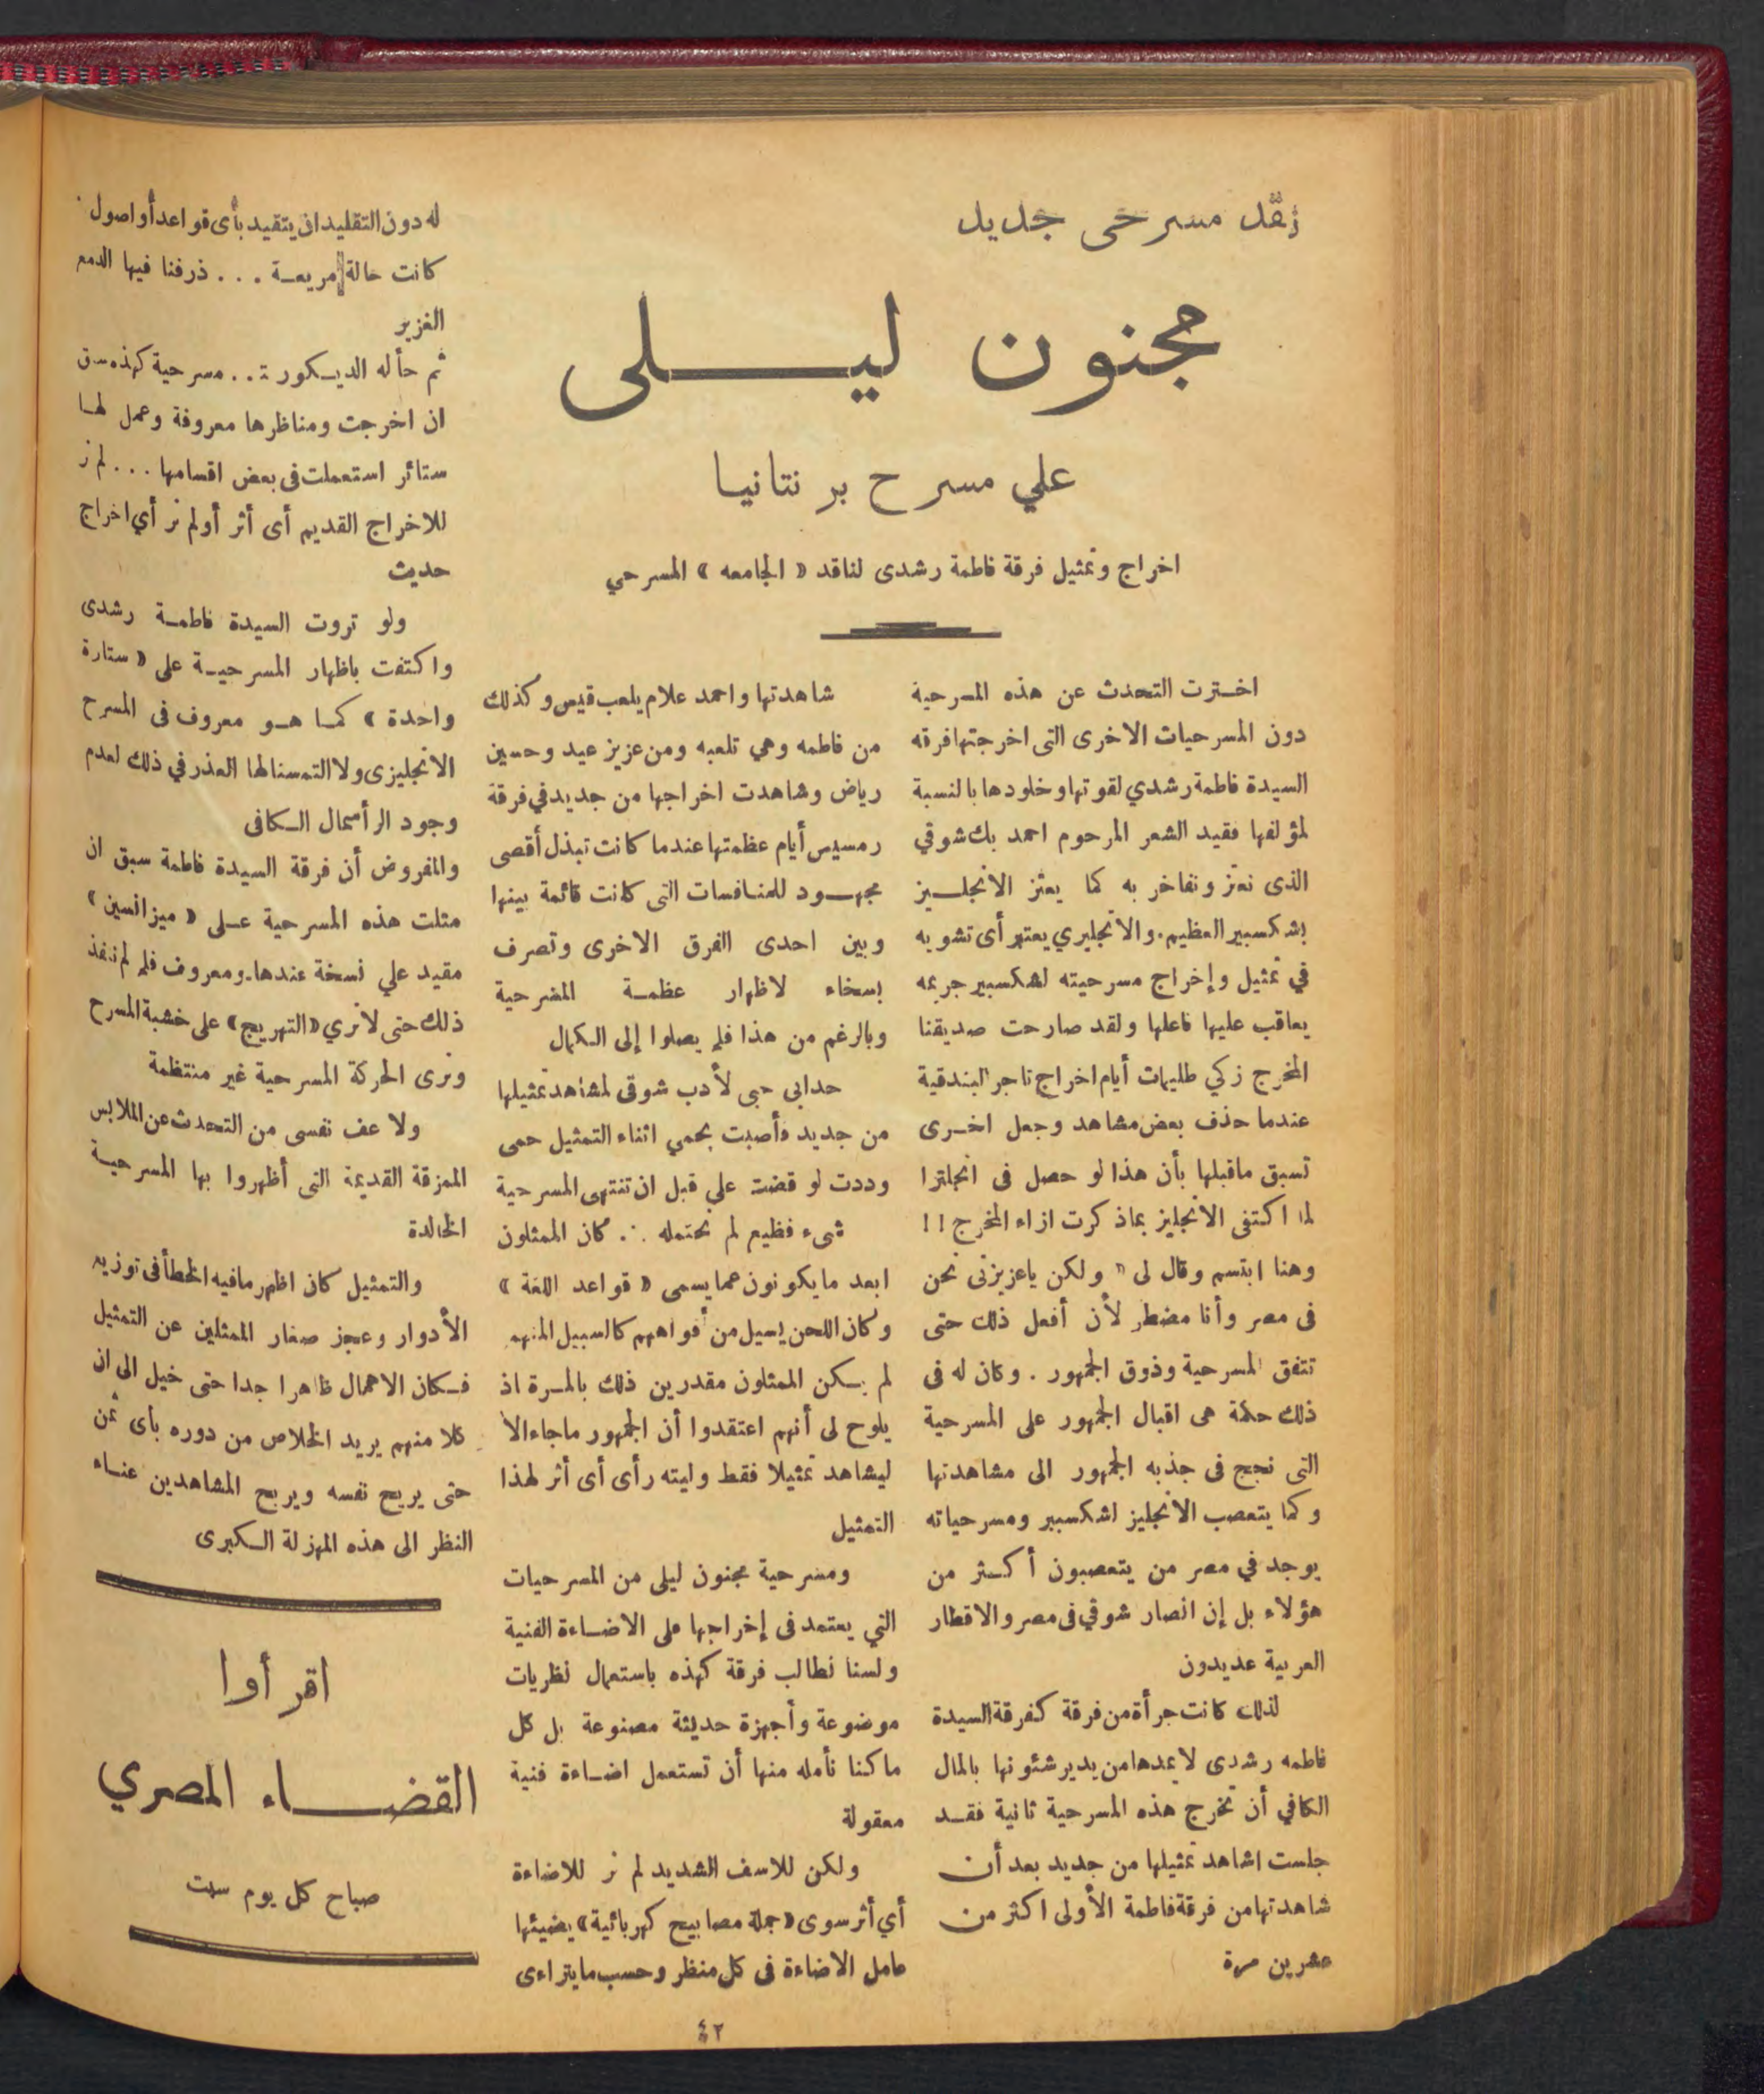 نقد مسرحى جديد
مجنون ليلى
علي مسرح برنتانيا
اخراج وتمثيل فرقة فاطمة رشدى لناقد « الجامعه » المسرحي
اخترت التحدث عن هذه المسرحية
دون المسرحيات الاخرى التى اخرجتها فرقه
السيدة فاطمة رشدي لقوتها وخلودها بالنسبة
لمؤلفها فقيد الشعر المرحوم احمد بك شوقي
الذى نعتز ونفاخر به كما يعتز الانجليز
بشكسبير العظيم . والانجليزي يعتبر أى تشويه
في تمثيل وإخراج مسرحيته لشكسبير جريمه
يعاقب عليها فاعلها ولقد صارحت صديقنا
المخرج زكي طليمات أيام اخراج تاجر البندقية
عندما حذف بعض مشاهد وجعل اخرى
تسبق ماقبلها بأن هذا لو حصل فى انجلترا
لما اكتفى الانجليز بماذكرت ازاء المخرج !!
وهنا ابتسم وقال لى « ولكن ياعزيزتى نحن
فى مصر وأنا مضطر لأن أفعل ذلك حتى
تتفق المسرحية وذوق الجمهور . وكان له فى
ذلك حكمة هى اقبال الجمهور على المسرحية
التى نجح فى جذبه الجمهور الى مشاهدتها
وكما يتعصب الانجليز لشكسبير ومسرحياته
يوجد في مصر من يتعصبون أكثر من
هؤلاء بل إن انصار شوقي فى مصر والاقطار
العربية عديدون
لذلك كانت جرأة من فرقة كفرقة السيدة
فاطمه رشدى لا يمدها من يدير شئونها بالمال
الكافي أن تخرج هذه المسرحية ثانية فقد
جلست اشاهد تمثيلها من جديد بعد أن
شاهدتها من فرقة فاطمة الأولى اكثر من
عشرين مرة
شاهدتها واحمد علام يلعب قيس وكذلك
من فاطمه وهي تلعبه ومن عزيز عيد وحسين
رياض وشاهدت اخراجها من جديد في فرقة
رمسيس أيام عظمتها عندما كانت تبذل أقصى
مجهود للمنافسات التى كانت قائمة بينها
وبين احدى الفرق الاخرى وتصرف
بسخاء لاظهار عظمة المسرحية
وبالرغم من هذا فلم يصلوا إلى الكمال
حدابى حبى لأدب شوقى لمشاهد تمثيلها
من جديد فأصبت بحمي اثناء التمثيل حمى
وددت لو قضت علي قبل ان تنتهى المسرحية
شىء فظيع لم نحتمله .٠. كان الممثلون
ابعد مايكونون عما يسمى « قواعد اللغة »
وكان اللحن يسيل من أفواههم كالسبيل المنهم
لم يكن الممثلون مقدرين ذلك بالمرة اذ
يلوح لى أنهم اعتقدوا أن الجمهور ماجاء الا
ليشاهد تمثيلا فقط وليته رأى أى أثر لهذا
التمثيل
ومسرحية مجنون ليلى من المسرحيات
التي يعتمد فى إخراجها على الاضاءة الفنية
ولسنا نطالب فرقة كهذه باستعمال نظريات
موضوعة وأجهزة حديثة مصنوعة بل كل
ماكنا نأمله منها أن تستعمل اضاءة فنية
معقولة
ولكن للاسف الشديد لم نر للاضاءة
أي أثر سوى « جملة مصابيح كهربائية » يضيئها
عامل الاضاءة فى كل منظر وحسب مايتراءى
له دون التقليد ان يتقيد بأى قواعد أو اصول .
كانت حالة مريعة . . . ذرفنا فيها الدمع
الغزير
ثم حأله الديكور : . . مسرحية كهذه سبق
ان اخرجت ومناظرها معروفة وعمل لها
ستائر استعملت فى بعض اقسامها . . . لم نر
للاخراج القديم أى أثر أو لم نر أي اخراج
حديث
ولو تروت السيدة فاطمة رشدى
واكتفت باظهار المسرحية على « ستارة
واحدة » كما هو معروف فى المسرح
الانجليزى ولا التمسنا لها العذر في ذلك لعدم
وجود الرأسمال الكافى
والمفروض أن فرقة السيدة فاطمة سبق ان
مثلت هذه المسرحية على « ميزانسين »
مقيد علي نسخة عندها . ومعروف فلم لم تنفذ
ذلك حتى لا نري « التهريج » على خشبة المسرح
ونرى الحركة المسرحية غير منتظمة
ولا عف نفسى من التحدث عن الملابس
الممزقة القديمة التى أظهروا بها المسرحية
الخالدة
والتمثيل كان اظهر مافيه الخطأ فى توزيع
الأدوار وعجز صغار الممثلين عن التمثيل
فكان الاهمال ظاهرا جدا حتى خيل الى ان
كلا منهم يريد الخلاص من دوره بأى ثمن
حتى يريح نفسه ويريح المشاهدين عناء
النظر الى هذه المهزلة الكبرى
اقرأوا
القضاء المصري
صباح كل يوم سبت
٤٢